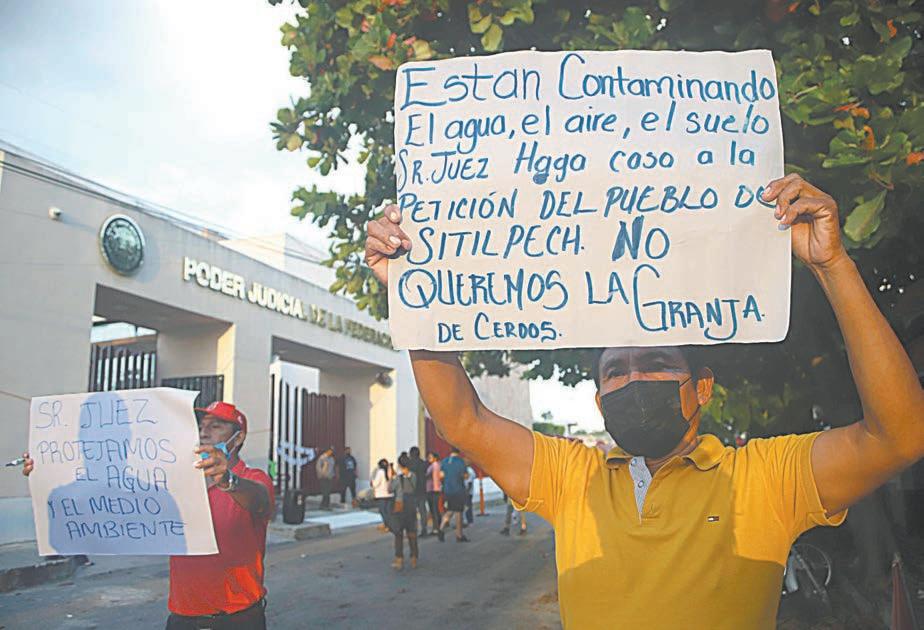 Están Contaminando
El agua, el aire, el suelo
SR. JUEZ Haga caso a la
PETICIÓN DEL PUEBLO DE
SITILPECH. NO
QUEREMOS LA GRANJA.
DE CERDOS.
PODER JUDICIAL DE LA FEDERACION
SR. JUEZ
PROTEJAMOS
EL AGUA
Y EL MEDIO
AMBIENTE